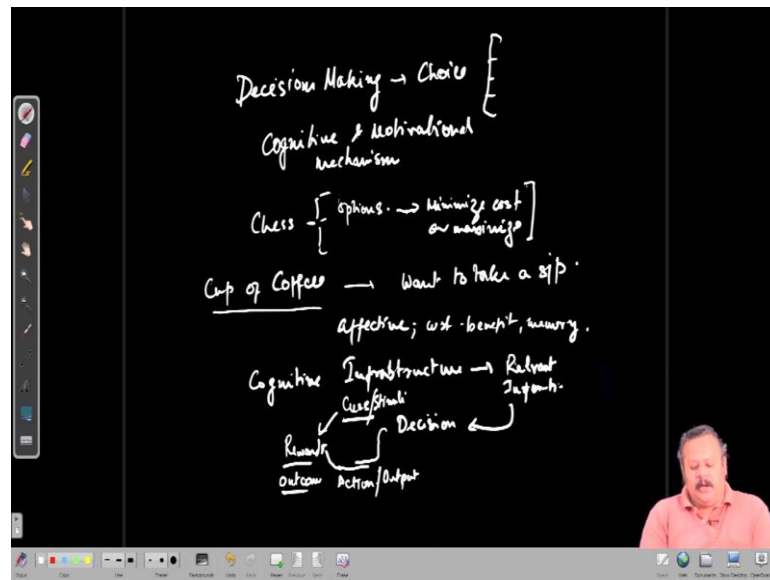 Decision Making → Choice
Cognitive & Motivational
mechanism
Chess options. → Minimize cost
or maximize
Cup of Coffee — Want to take a sip.
affective; cost-benefit, memory.
Cognitive Infrastructure →
Cues/Stimuli
Decision
Reward
Outcom Action/Output